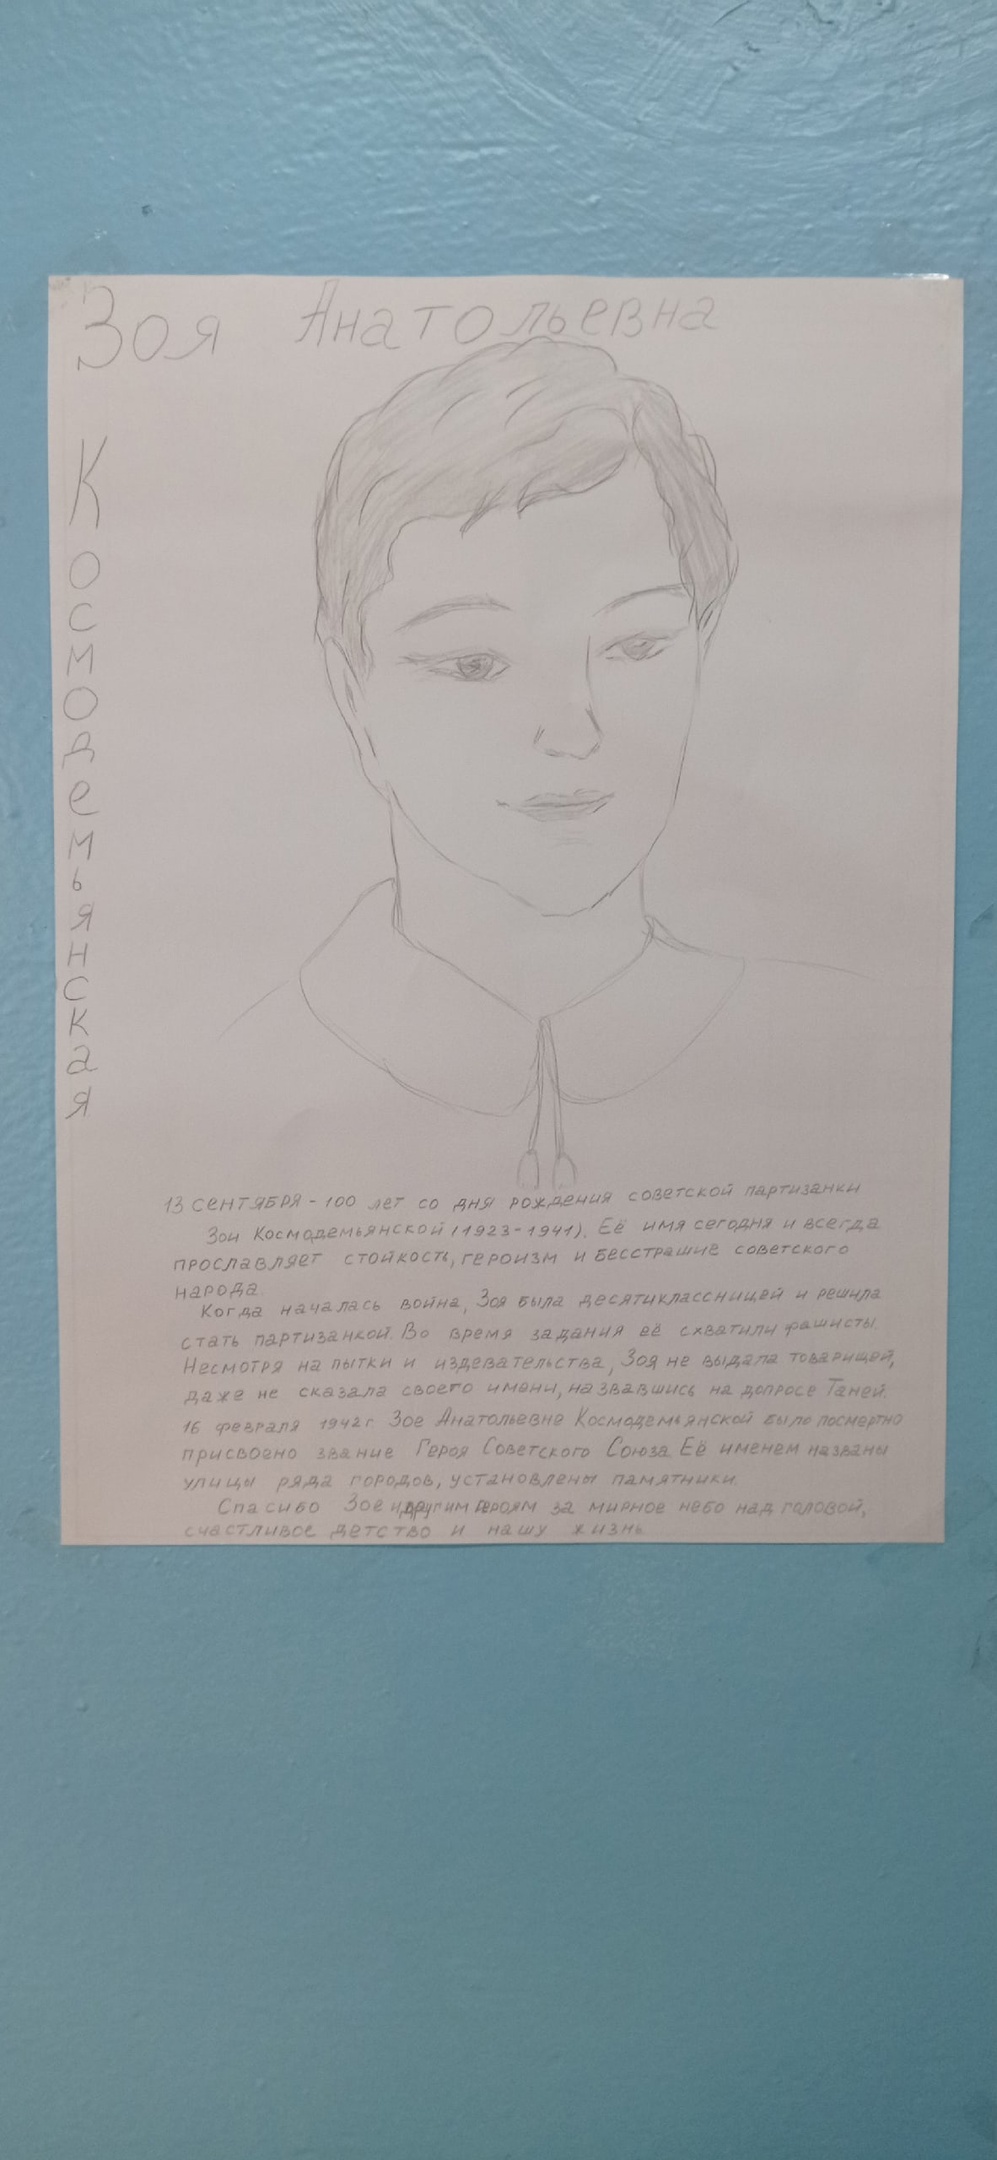 Зоя Анатольевна
Космодемьянская
13 сентября - 100 лет со дня рождения советской партизанки
Зои Космодемьянской (1923-1941). Её имя сегодня и всегда
прославляет стойкость, героизм и бесстрашие советского
народа.
Когда началась война, Зоя была десятиклассницей и решила
стать партизанкой. Во время задания её схватили фашисты.
Несмотря на пытки и издевательства, Зоя не выдала товарищей,
даже не сказала своего имени, назвавшись на допросе Таней.
16 февраля 1942 г. Зое Анатольевне Космодемьянской было посмертно
присвоено звание Героя Советского Союза Её именем названы
улицы ряда городов, установлены памятники.
Спасибо Зое и другим героям за мирное небо над головой,
счастливое детство и нашу жизнь